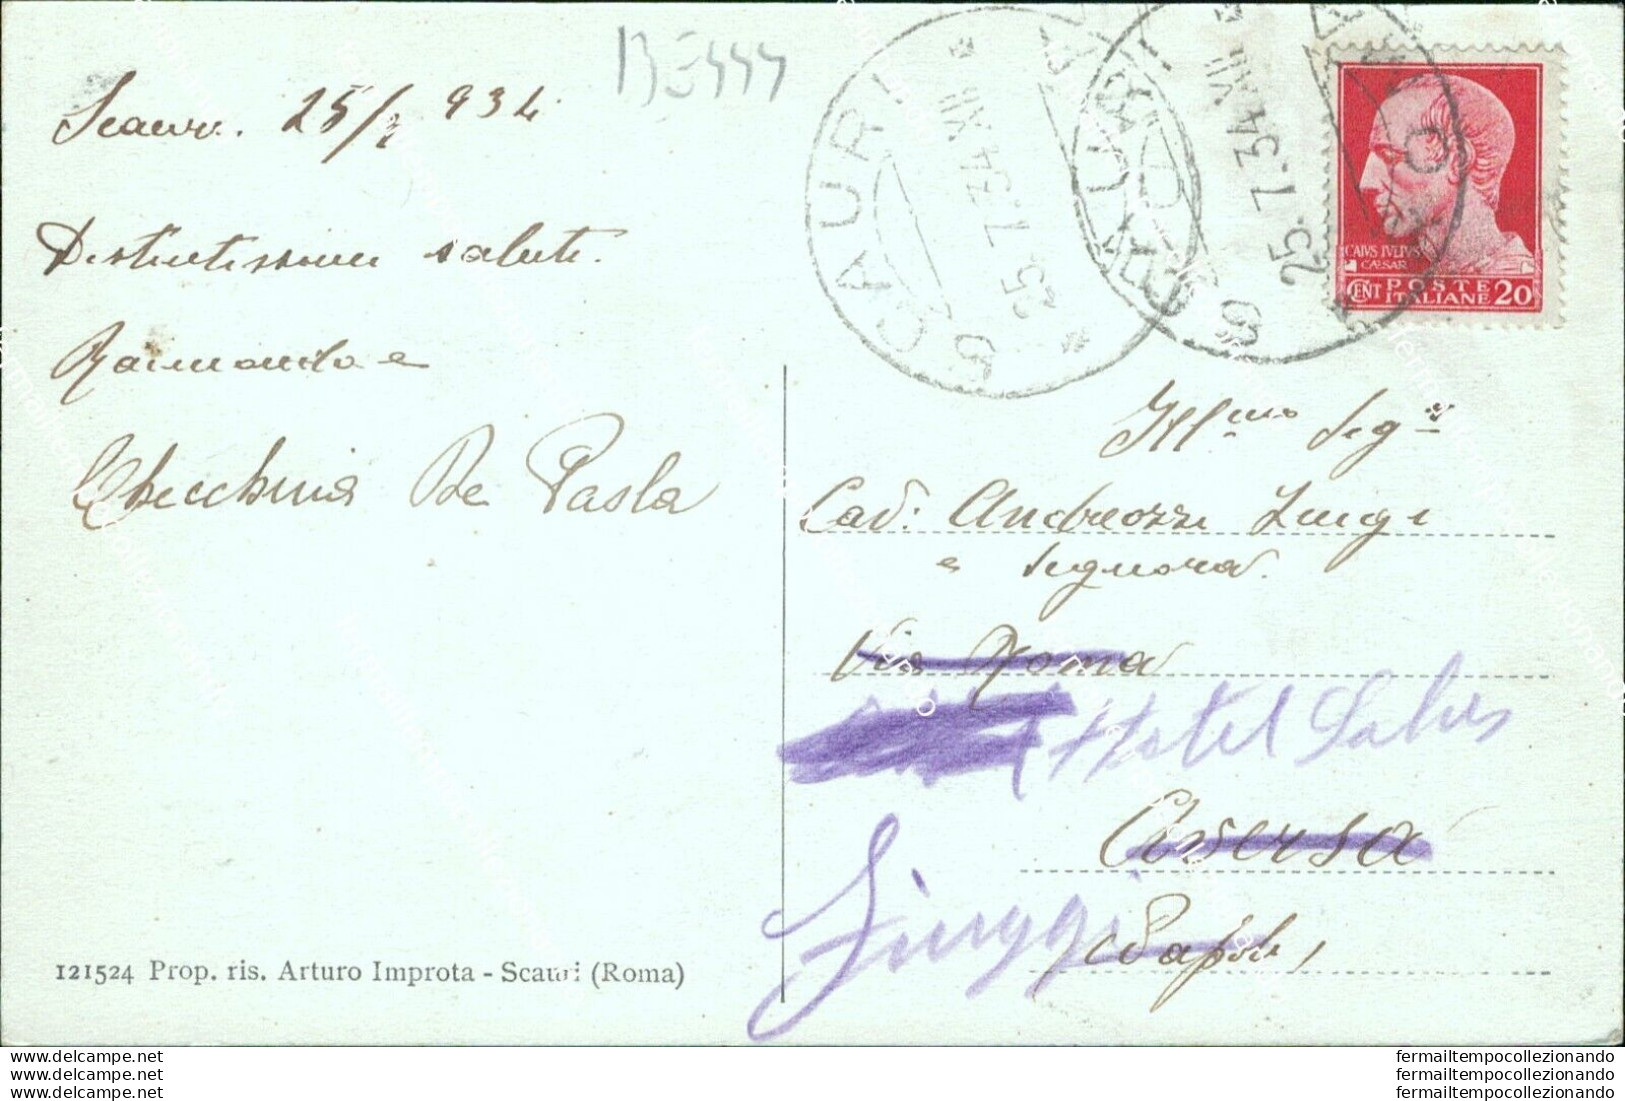 Scauri. 25/7 934
Distintissimi saluti.
Raimondo e
Checchina De Paola
121524 Prop. ris. Arturo Improta - Scauri (Roma)
SCAURI
25.7.34 XII
SCAURI
25.7.34 XII
CAIVS IVLIVS
CAESAR
CENT POSTE ITALIANE 20
Ill.mo Sig.r
Cav: Andreozzi Luigi
e Signora
Via Roma
Hotel Salus
Aversa
Fiuggi
Napoli
www.delcampe.net
www.delcampe.net
www.delcampe.net
fermailtempocollezionando
fermailtempocollezionando
fermailtempocollezionando